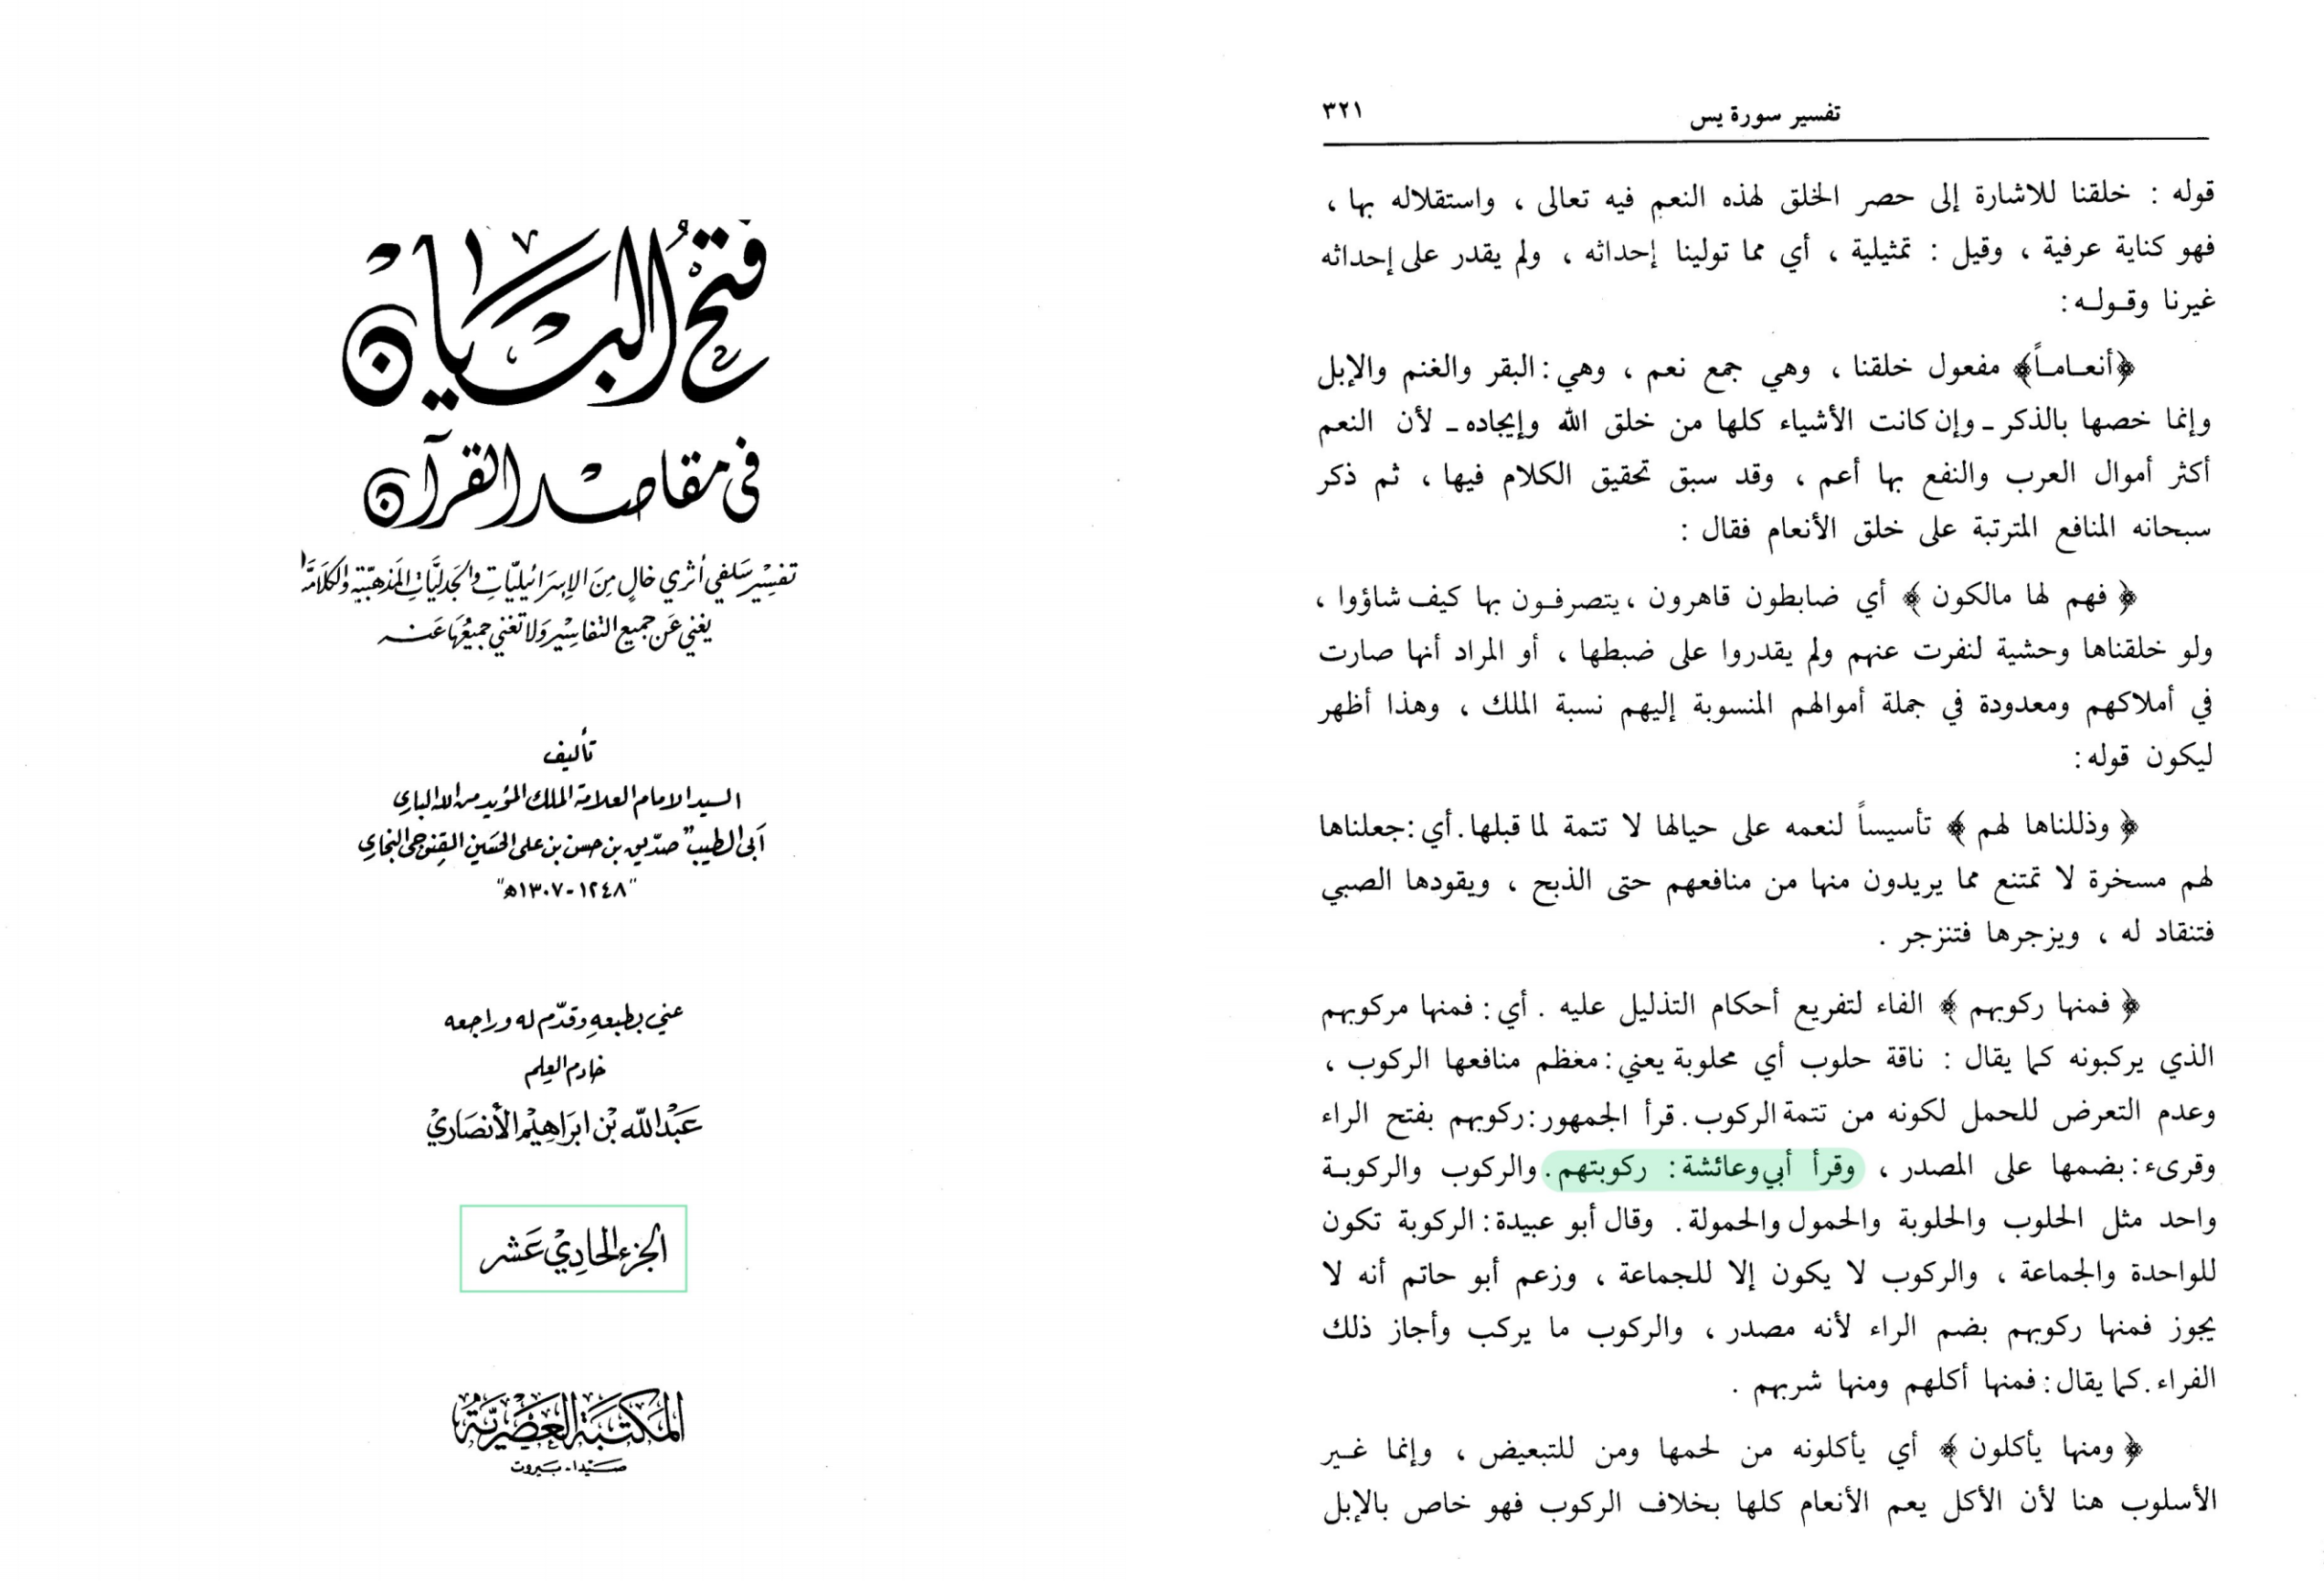 فتح البيان
في مقاصد القرآن
تفسير سلفي أثري خال من الإسرائيليات والجدليات المذهبية والكلامية
يغني عن جميع التفاسير ولا تغني جميعها عنه
تأليف
السيد الامام العلامة الملك المؤيد من الله الباري
أبي الطيب "صديق بن حسن بن علي الحسين القنوجي البخاري
"١٢٤٨-١٣٠٧ه"
عني بطبعه وقدّم له وراجعه
خادم العلم
عبد الله بن ابراهيم الأنصاري
الجزء الحادي عشر
المكتبة العصرية
صيدا - بيروت
تفسير سورة يس ٣٢١
قوله : خلقنا للاشارة إلى حصر الخلق لهذه النعم فيه تعالى ، واستقلاله بها ،
فهو كناية عرفية ، وقيل : تمثيلية ، أي مما تولينا إحداثه ، ولم يقدر على إحداثه
غيرنا وقـولـه :
﴿أنعـامـاً﴾ مفعول خلقنا ، وهي جمع نعم ، وهي : البقر والغنم والإبل
وإنما خصها بالذكر ـ وإن كانت الأشياء كلها من خلق الله وإيجاده ـ لأن النعم
أكثر أموال العرب والنفع بها أعم ، وقد سبق تحقيق الكلام فيها ، ثم ذكر
سبحانه المنافع المترتبة على خلق الأنعام فقال :
﴿ فهم لها مالكون ﴾ أي ضابطون قاهرون ، يتصرفـون بها كيف شاؤوا ،
ولو خلقناها وحشية لنفرت عنهم ولم يقدروا على ضبطها ، أو المراد أنها صارت
في أملاكهم ومعدودة في جملة أموالهم المنسوبة إليهم نسبة الملك ، وهذا أظهر
ليكون قوله :
﴿ وذللناها لهم ﴾ تأسيساً لنعمه على حيالها لا تتمة لما قبلها . أي : جعلناها
لهم مسخرة لا تمتنع مما يريدون منها من منافعهم حتى الذبح ، ويقودها الصبي
فتنقاد له ، ويزجرها فتنزجر .
﴿ فمنها ركوبهم ﴾ الفاء لتفريع أحكام التذليل عليه . أي : فمنها مركوبهم
الذي يركبونه كما يقال : ناقة حلوب أي محلوبة يعني : مغظم منافعها الركوب ،
وعدم التعرض للحمل لكونه من تتمة الركوب . قرأ الجمهور : ركوبهم بفتح الراء
وقرىء : بضمها على المصدر ، وقرأ أبي وعائشة : ركوبتهم . والركوب والركوبـة
واحد مثل الحلوب والحلوبة والحمول والحمولة . وقال أبو عبيدة : الركوبة تكون
للواحدة والجماعة ، والركوب لا يكون إلا للجماعة ، وزعم أبو حاتم أنه لا
يجوز فمنها ركوبهم بضم الراء لأنه مصدر ، والركوب ما يركب وأجاز ذلك
الفراء . كما يقال : فمنها أكلهم ومنها شربهم .
﴿ ومنها يأكلون ﴾ أي يأكلونه من لحمها ومن للتبعيض ، وإنما غـير
الأسلوب هنا لأن الأكل يعم الأنعام كلها بخلاف الركوب فهو خاص بالإبل